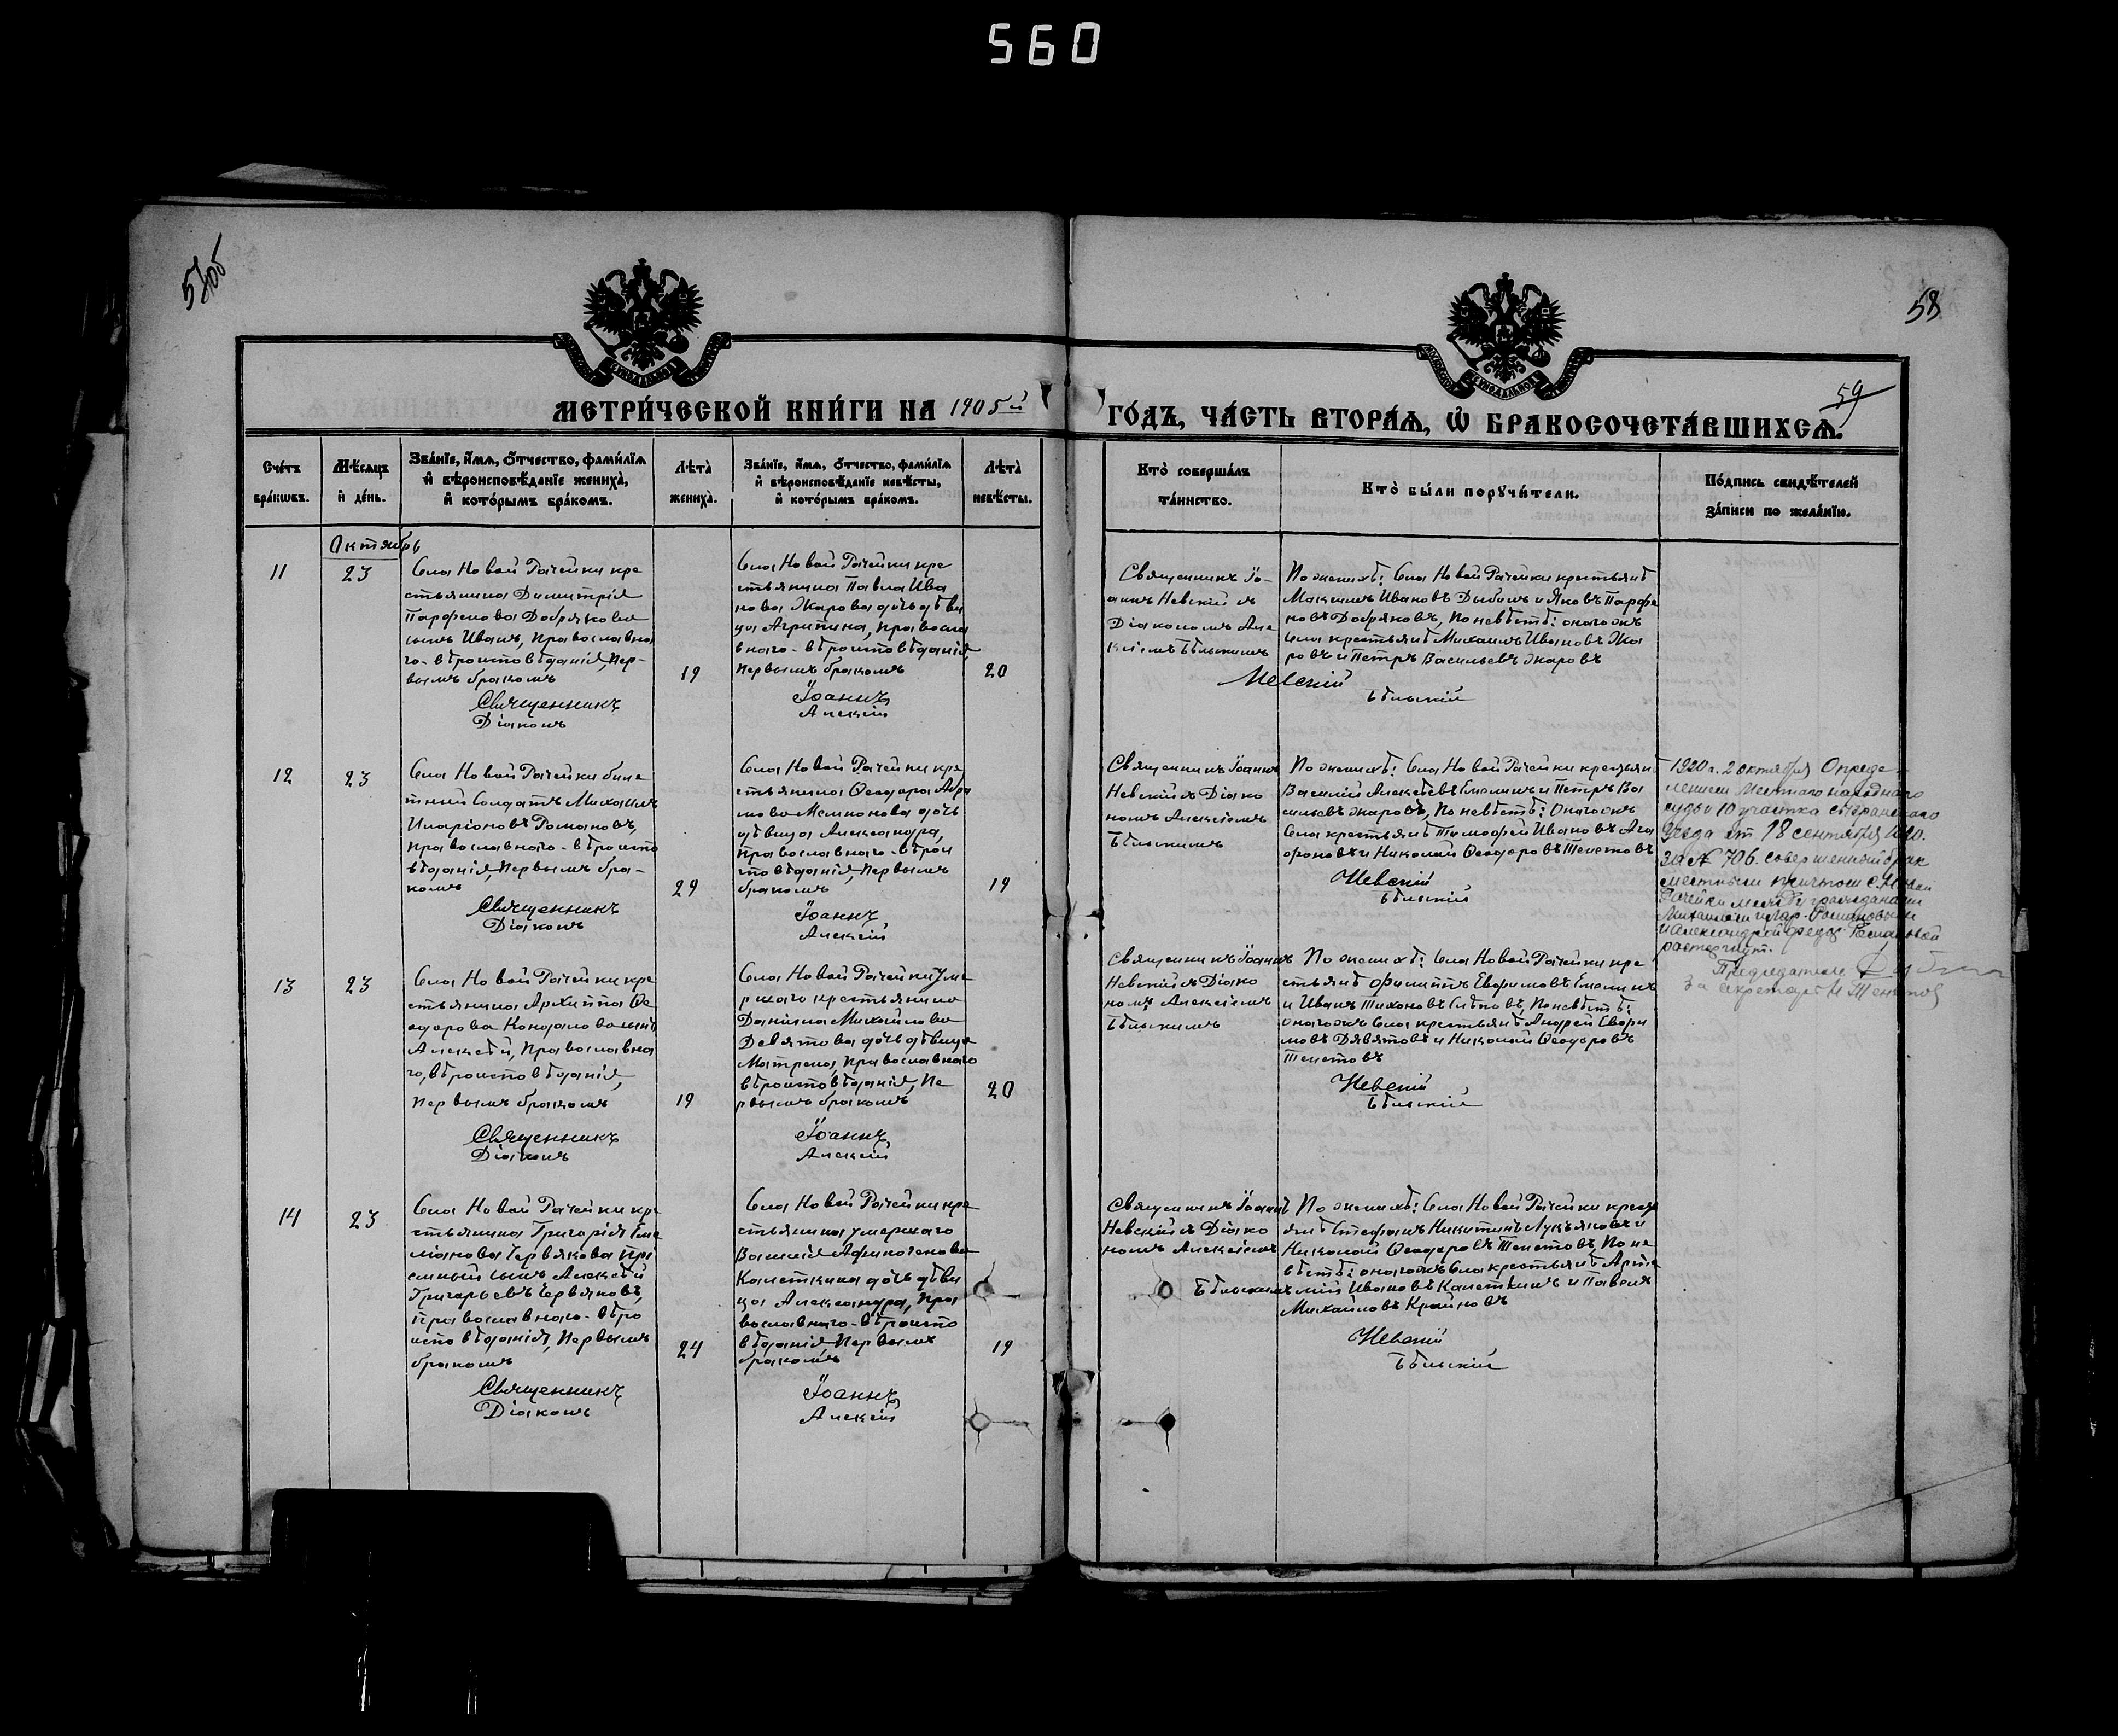 560
58
59
МЕТРИ́ЧЕСКОЙ КНИ́ГИ НА 1905й
ГО́ДЪ, ЧА́СТЬ ВТОРА́Ѧ, Ѽ БРАКОСОЧЕТА́ВШИХСѦ.
Сче́тъ бра́кѡвъ.
Мѣ́сяцъ и҆ де́нь.
Зва́нїе, и҆́мѧ, ѻ҆́тчество, фами́лїѧ
и҆ вѣроисповѣ́данїе жениха̀,
и҆ кото́рымъ бра́комъ.
Лѣта̀ жениха̀.
Зва́нїе, и҆́мѧ, ѻ҆́тчество, фами́лїѧ
и҆ вѣроисповѣ́данїе невѣ́сты,
и҆ кото́рымъ бра́комъ.
Лѣта̀ невѣ́сты.
Кто̀ соверша́лъ
та́инство.
Кто̀ бы́ли порꙋчи́тели.
По́дпись свидѣ́телей
за́писи по жела́нїю.
Октябрь
11
23
Села Новой Рачейки кре
стьянина Димитрія
Парфенова Добрякова
сынъ Иванъ, православна
го-вѣроисповѣданія, пер-
вымъ бракомъ
19
Священникъ
Діаконъ
Села Новой Рачейки кре
стьянина Павла Ива
нова Жарова дочь дѣви
ца Агрипина, правосла
внаго-вѣроисповѣданія,
первымъ бракомъ
20
Іоаннъ
Алексій
Священникъ Іо-
аннъ Невскій съ
Діакономъ Але
ксіемъ Бѣльскимъ
По женихѣ: Села Новой Рачейки крестьянѣ
Максимъ Ивановъ Дыбинъ и Яковъ Парфе
новъ Добряковъ, по невѣстѣ: онагожъ
села крестьянѣ Михаилъ Ивановъ Жа
ровъ и Петръ Васильевъ Жаровъ
Невскій
Бѣльскій
12
23
Села Новой Рачейки биле
тный солдатъ Михаилъ
Иларіоновъ Романовъ,
православнаго-вѣроиспо
вѣданія, первымъ бра-
комъ
29
Священникъ
Діаконъ
Села Новой Рачейки кре
стьянина Ѳеодора
дочь
дѣвица Александра,
православнаго-вѣрои
сповѣданія, первымъ
бракомъ
19
Іоаннъ
Алексій
Священникъ Іоаннъ
Невскій съ Діако
номъ Алексіемъ
Бѣльскимъ
По женихѣ: Села Новой Рачейки крестьянѣ
Василій Алексѣевъ Емелинъ и Петръ Ва
сильевъ Жаровъ, по невѣстѣ: Онагожъ
села крестьянѣ Тимофей Ивановъ Ага
фоновъ и Николай Ѳеодоровъ Тенетовъ
Невскій
Бѣльскій
1920 г. 2 октября Опреде-
лением Местного народного
судьи 10 участка Сызранского
уезда от 18 сентября 1920.
за № 706. совершенный брак
местным причтом с. Новой
Рачейки между гражданами
Михаилом Илар. Романовым
и Александрой Федор. Романовой
расторгнут.
Председатель
За секретаря Н Тенетов
13
23
Села Новой Рачейки кре
стьянина Архиппа Ѳе
одорова сынъ
Алексѣй, православна
го, вѣроисповѣданія,
первымъ бракомъ
19
Священникъ
Діаконъ
Села Новой Рачейки уме
ршаго крестьянина
Даніила Михайлова
Девятова дочь дѣвица
Матрена, православнаго
вѣроисповѣданія, пе
рвымъ бракомъ
20
Іоаннъ
Алексій
Священникъ Іоаннъ
Невскій съ Діако
номъ Алексіемъ
Бѣльскимъ
По женихѣ: Села Новой Рачейки кре
стьянѣ Филиппъ Евфимовъ Емелинъ
и Иванъ Тихоновъ по невѣстѣ:
онагожъ села крестьянѣ Андрей Евфи
мовъ Дявятовъ и Николай Ѳеодоровъ
Тенетовъ
Невскій
Бѣльскій
14
23
Села Новой Рачейки кре
стьянина Григорія Еме
лianова Червякова прі
емный сынъ Алексѣй
Григорьевъ Червяковъ,
православнаго-вѣро
исповѣданія, первымъ
бракомъ
24
Священникъ
Діаконъ
Села Новой Рачейки кре
стьянина умершаго
Василія Афиногенова
Калеткина дочь дѣви
ца Александра, пра
вославнаго-вѣроиспо
вѣданія, первымъ
бракомъ
19
Іоаннъ
Алексій
Священникъ Іоаннъ
Невскій съ Діако
номъ Алексіемъ
Бѣльскимъ
По женихѣ: Села Новой Рачейки кресть
янѣ Стефанъ Никитинъ Лукъяновъ и
Николай Ѳеодоровъ Тенетовъ, по не
вѣстѣ: онагожъ села крестьянѣ Арте
мій Ивановъ Калеткинъ и Павелъ
Михайловъ Крайновъ
Невскій
Бѣльскій